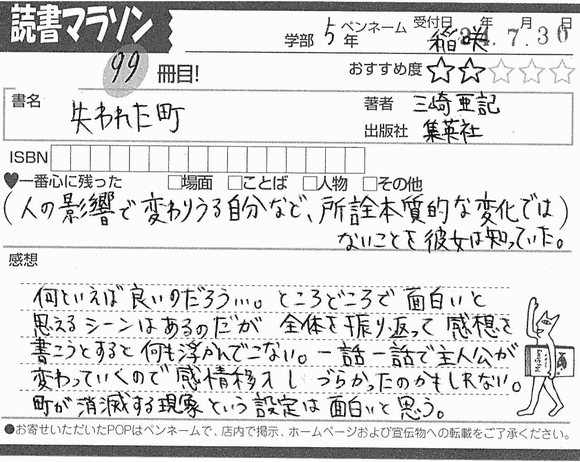 読書マラソン
学部 5年 ペンネーム 稲咲 受付日 年 月 日
24.7.30
99 冊目!
おすすめ度 ☆☆☆☆☆
書名 失われた町
著者 三崎亜記
出版社 集英社
ISBN
♥一番心に残った □場面 □ことば □人物 □その他
(人の影響で変わりうる自分など、所詮本質的な変化では)
ないことを彼女は知っていた。
感想
何といえば良いのだろう…。ところどころで面白いと
思えるシーンはあるのだが 全体を振り返って感想を
書こうとすると何も浮かんでこない。一話一話で主人公が
変わっていくので感情移入しづらかったのかもしれない。
町が消滅する現象という設定は面白いと思う。
●お寄せいただいたPOPはペンネームで、店内で掲示、ホームページおよび宣伝物への転載をご了承ください。